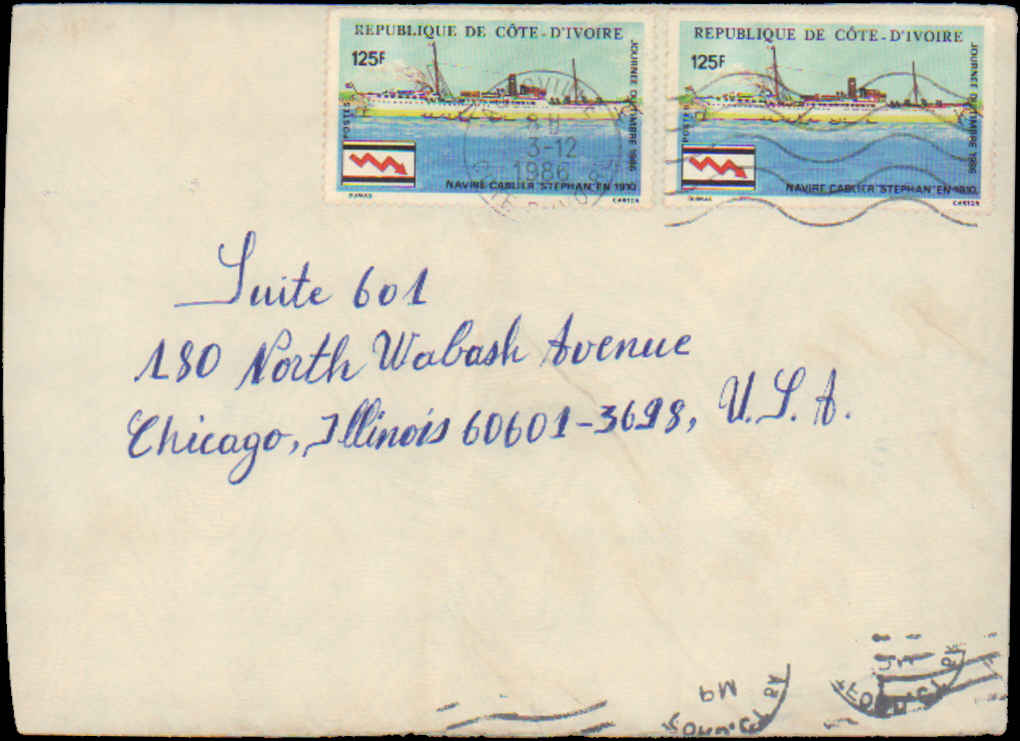 REPUBLIQUE DE CÔTE-D'IVOIRE
125F
POSTES
JOURNEE DU TIMBRE 1986
NAVIRE CABLIER "STEPHAN" EN 1910
DUMAS
CARTOR
3-12
1986
REPUBLIQUE DE CÔTE-D'IVOIRE
125F
POSTES
JOURNEE DU TIMBRE 1986
NAVIRE CABLIER "STEPHAN" EN 1910
DUMAS
CARTOR
Suite 601
180 North Wabash Avenue
Chicago, Illinois 60601-3698, U.S.A.
PM